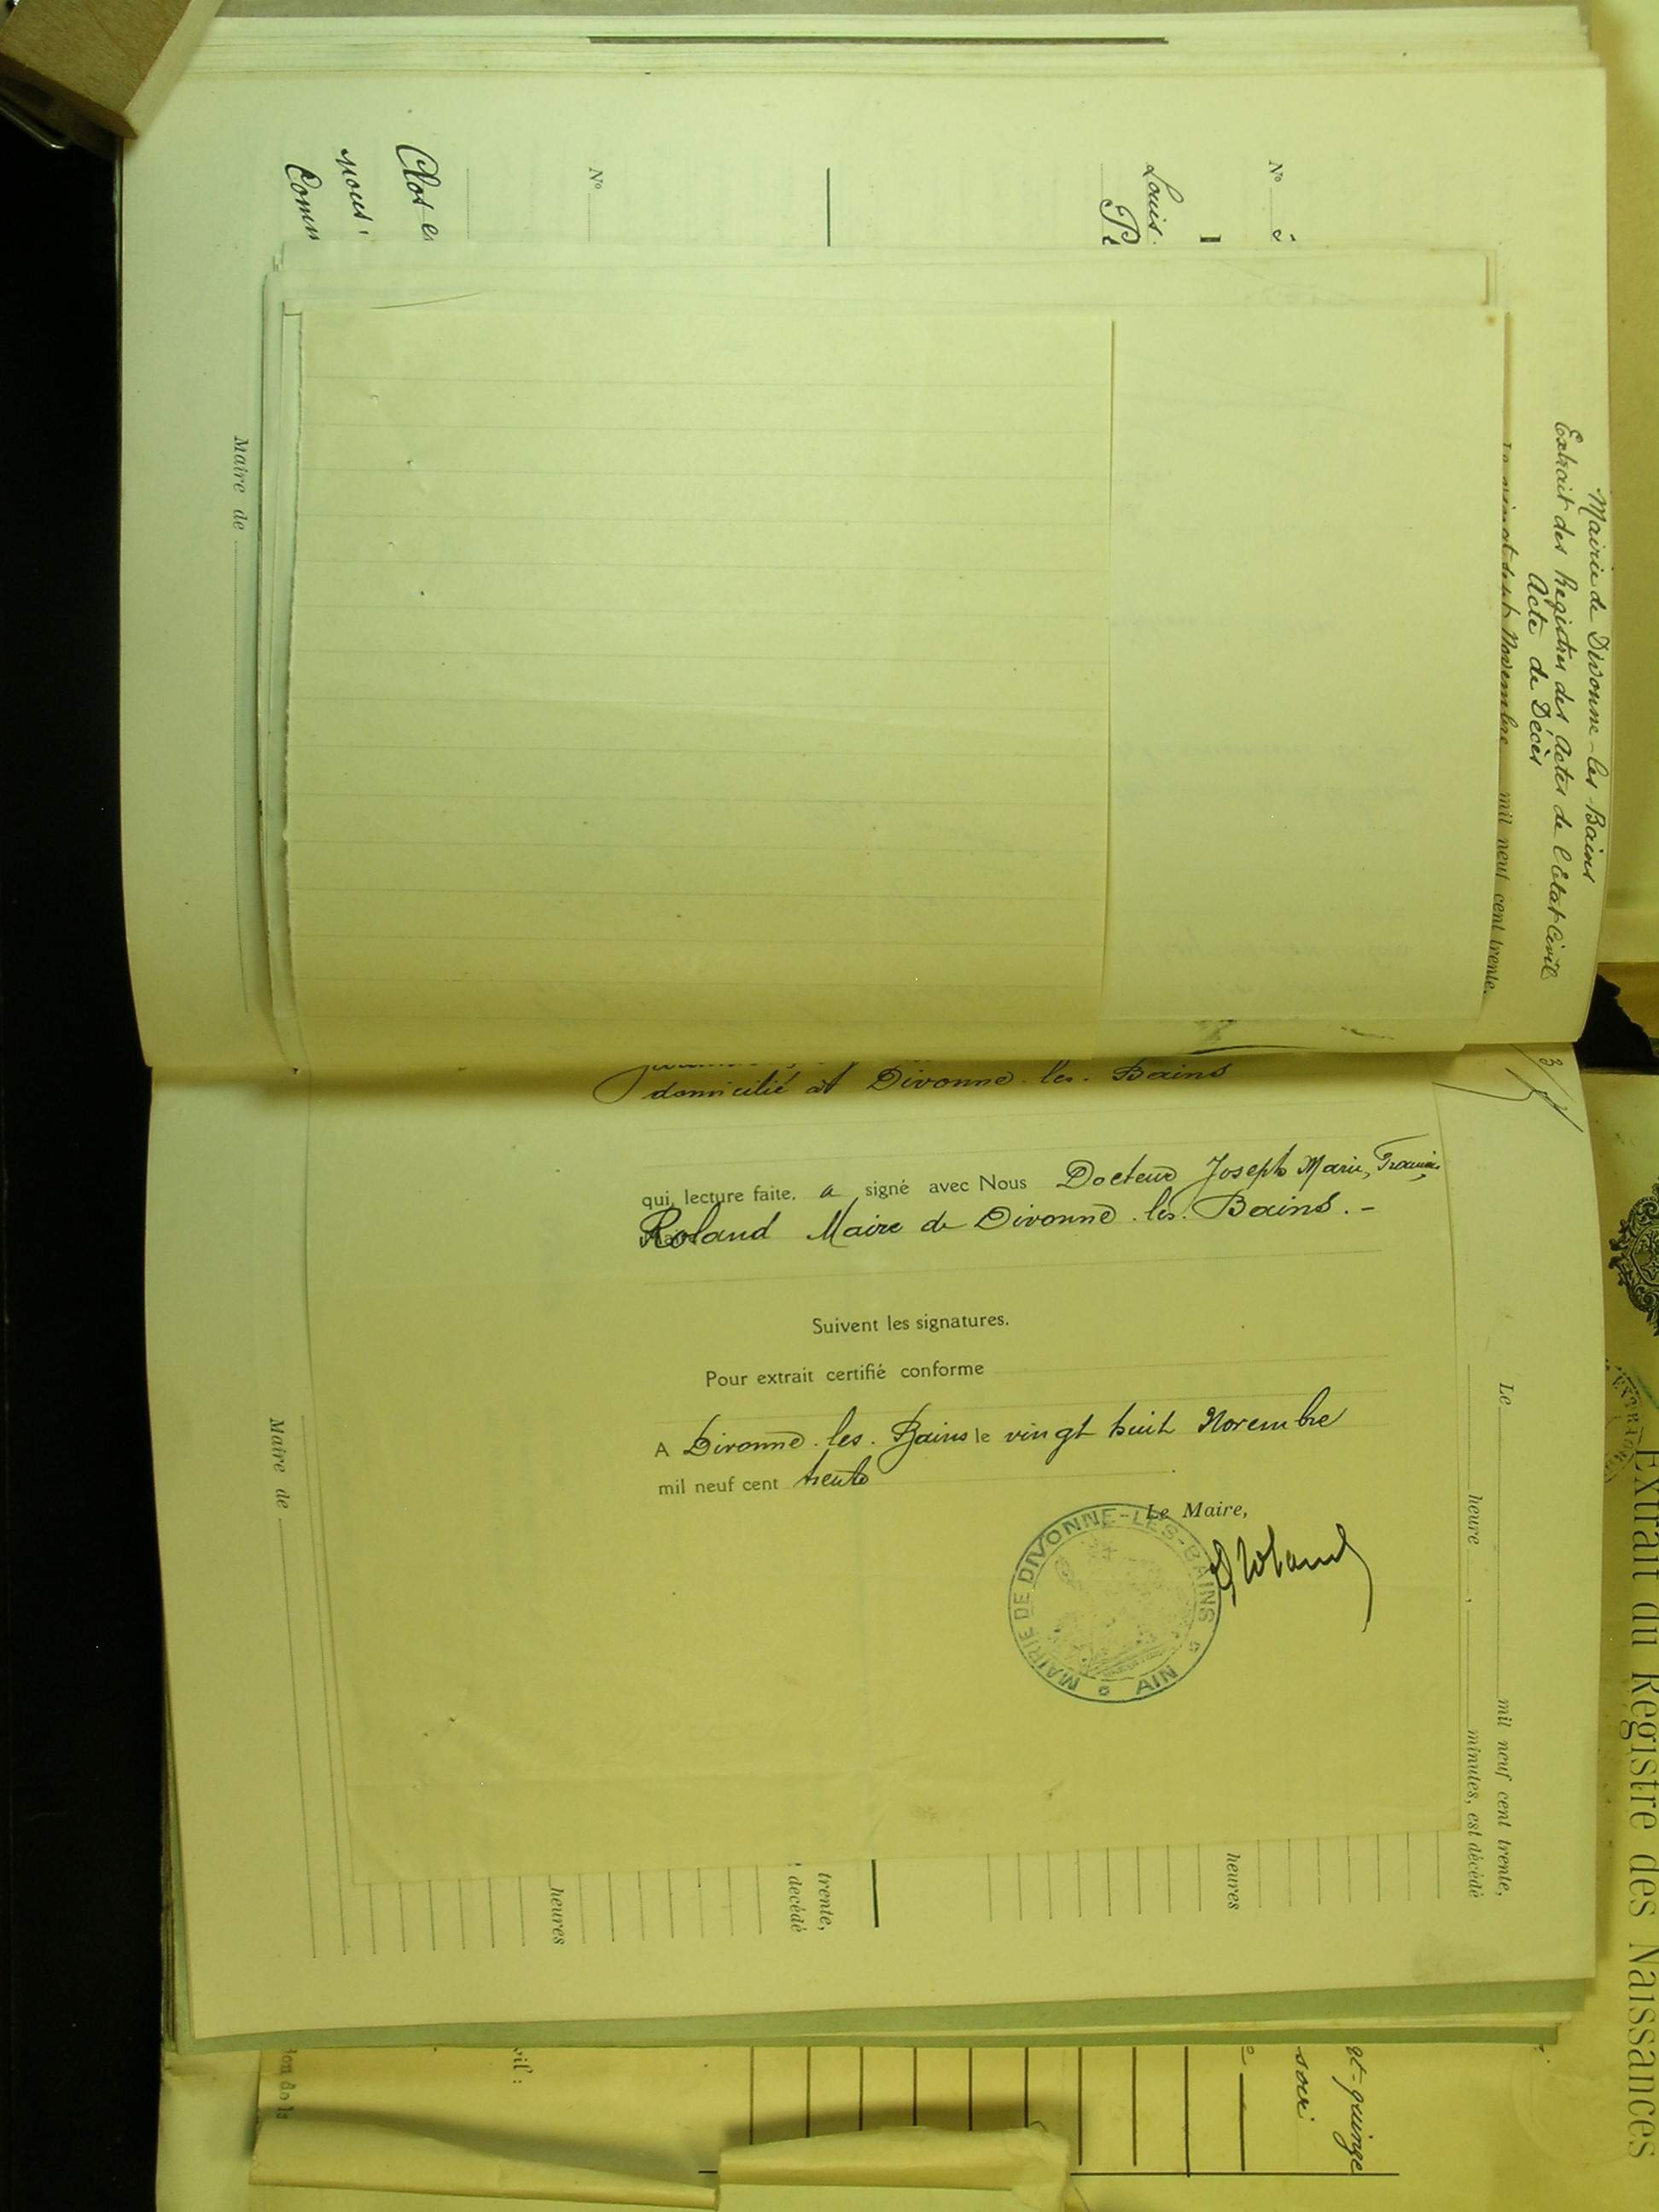 Mairie de Divonne-les-Bains
Extrait des Registres des Actes de l'Etat-Civil
Acte de Décès
Novembre mil neuf cent trente.
Nº
Louis.
Nº
Clos
nous
Maire de
domicilié at Divonne.les.Bains
qui, lecture faite, a signé avec Nous Docteur Joseph Marie,
Roland Maire de Divonne.les.Bains.-
Suivent les signatures.
Pour extrait certifié conforme
A Divonne.les.Bains le vingt huit Novembre
mil neuf cent trente
Le Maire,
MAIRIE DE DIVONNE-LES-BAINS
AIN
Le mil neuf cent trente,
heure , minutes, est décédé
heures
trente,
décédé
heures
Maire de
Extrait du Registre des Naissances
soir